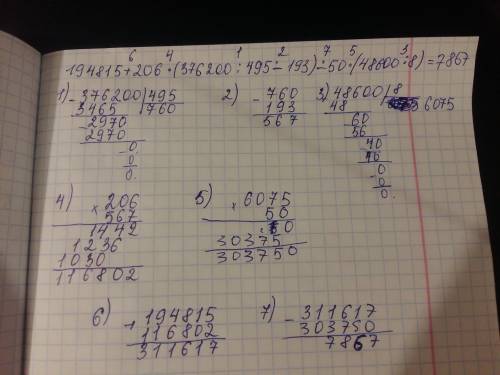 6 4 1 2 7 5 3
194815+206·(376200:495-193)-50·(48600:8)=7867
1) 376200|495
- 3465 760
- 2970
2970
- 0
0
0.
2) - 760
193
567
3) 48600|8
48 6075
- 60
56
- 40
40
- 0
0
0.
4) × 206
567
1442
1236
1030
116802
5) × 6075
50
0
30375
303750
6) + 194815
116802
311617
7) - 311617
303750
7867